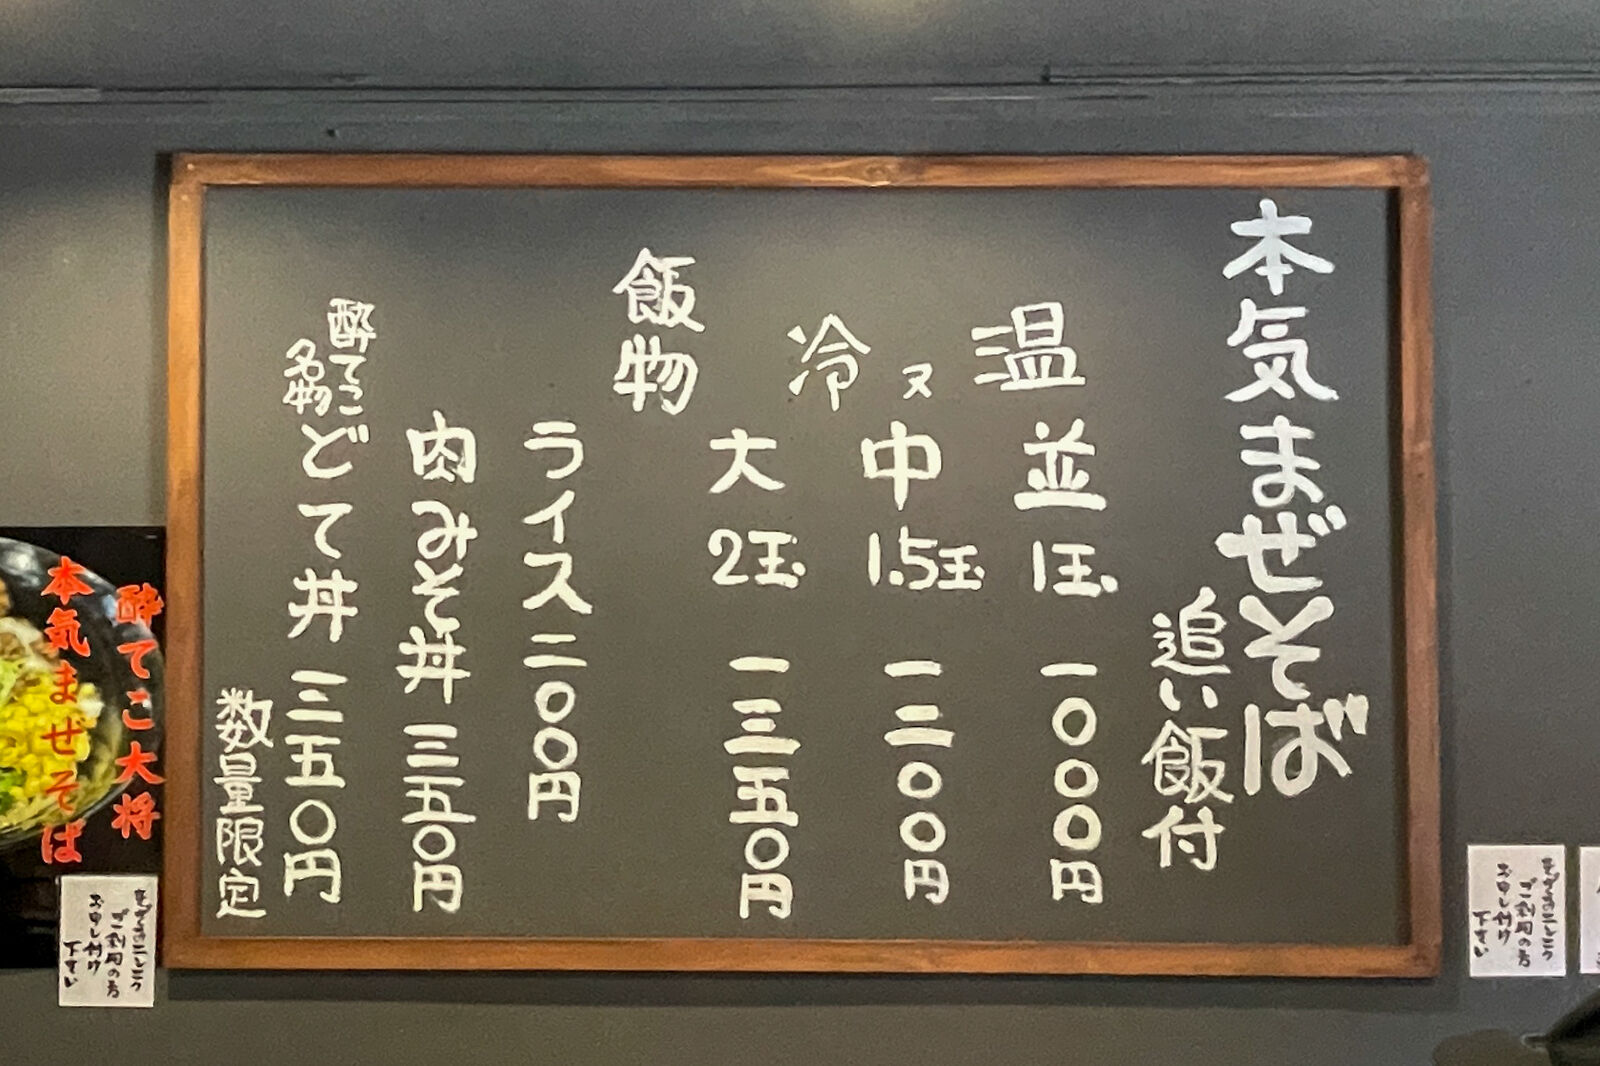 本気まぜそば
追い飯付
温 ヌ 冷
並 1玉 一〇〇〇円
中 1.5玉 一二〇〇円
大 2玉 一三五〇円
飯物
ライス 二〇〇円
肉みそ丼 三五〇円
酔てこ
名物
どて丼 三五〇円
数量限定
酔てこ大将
本気まぜそば
ご利用の方
お申し付け
下さい
ご利用の方
お申し付け
下さい